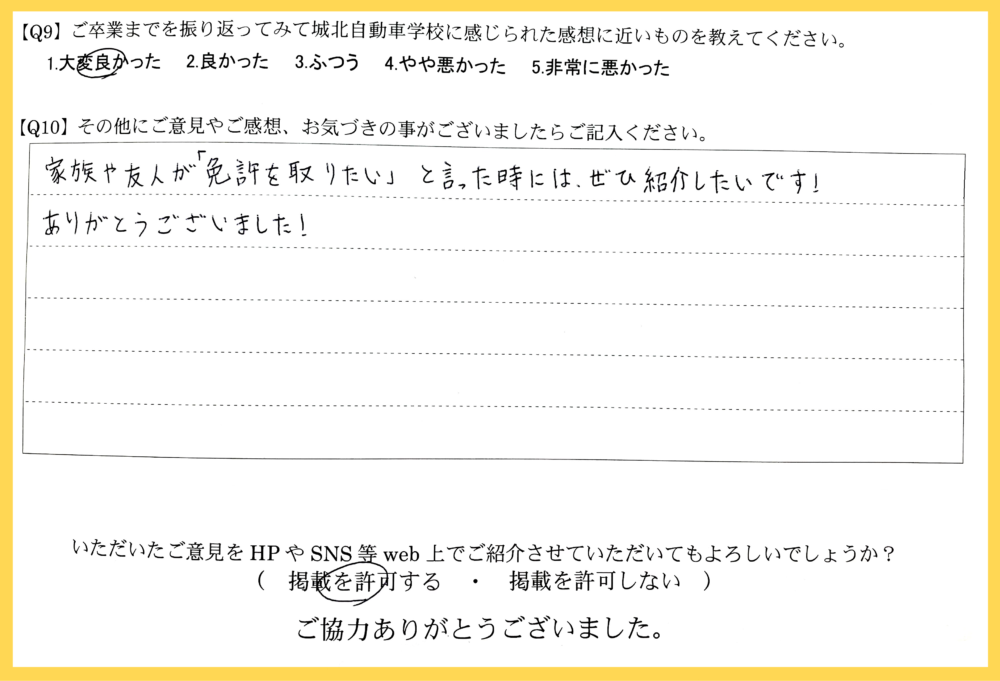 【Q9】ご卒業までを振り返ってみて城北自動車学校に感じられた感想に近いものを教えてください。
1.大変良かった 2.良かった 3.ふつう 4.やや悪かった 5.非常に悪かった
【Q10】その他にご意見やご感想、お気づきの事がございましたらご記入ください。
家族や友人が「免許を取りたい」と言った時には、ぜひ紹介したいです!
ありがとうございました!
いただいたご意見をHPやSNS等web上でご紹介させていただいてもよろしいでしょうか?
( 掲載を許可する ・ 掲載を許可しない )
ご協力ありがとうございました。